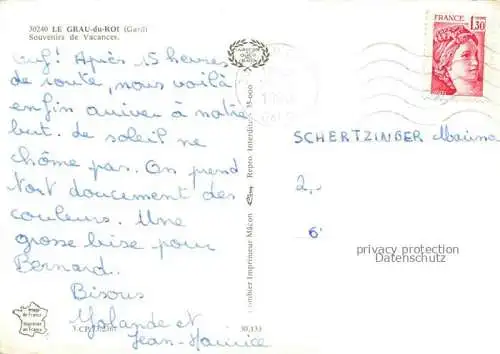 30240 LE GRAU-du-ROI (Gard)
Souvenirs de Vacances.
Ouf! Après 15 heures
de route, nous voilà
enfin arriver à notre
but. de soleil ne
chôme pas. On prend
tout doucement des
couleurs. Une
grosse bise pour
Bernard..
Bisous
Yolande et
Jean-Maurice
FRANCE
1,30
SCHERTZINGER
2,-
6
privacy protection
Datenschutz
Combier Imprimeur Mâcon
Repro. Interdite
30.133